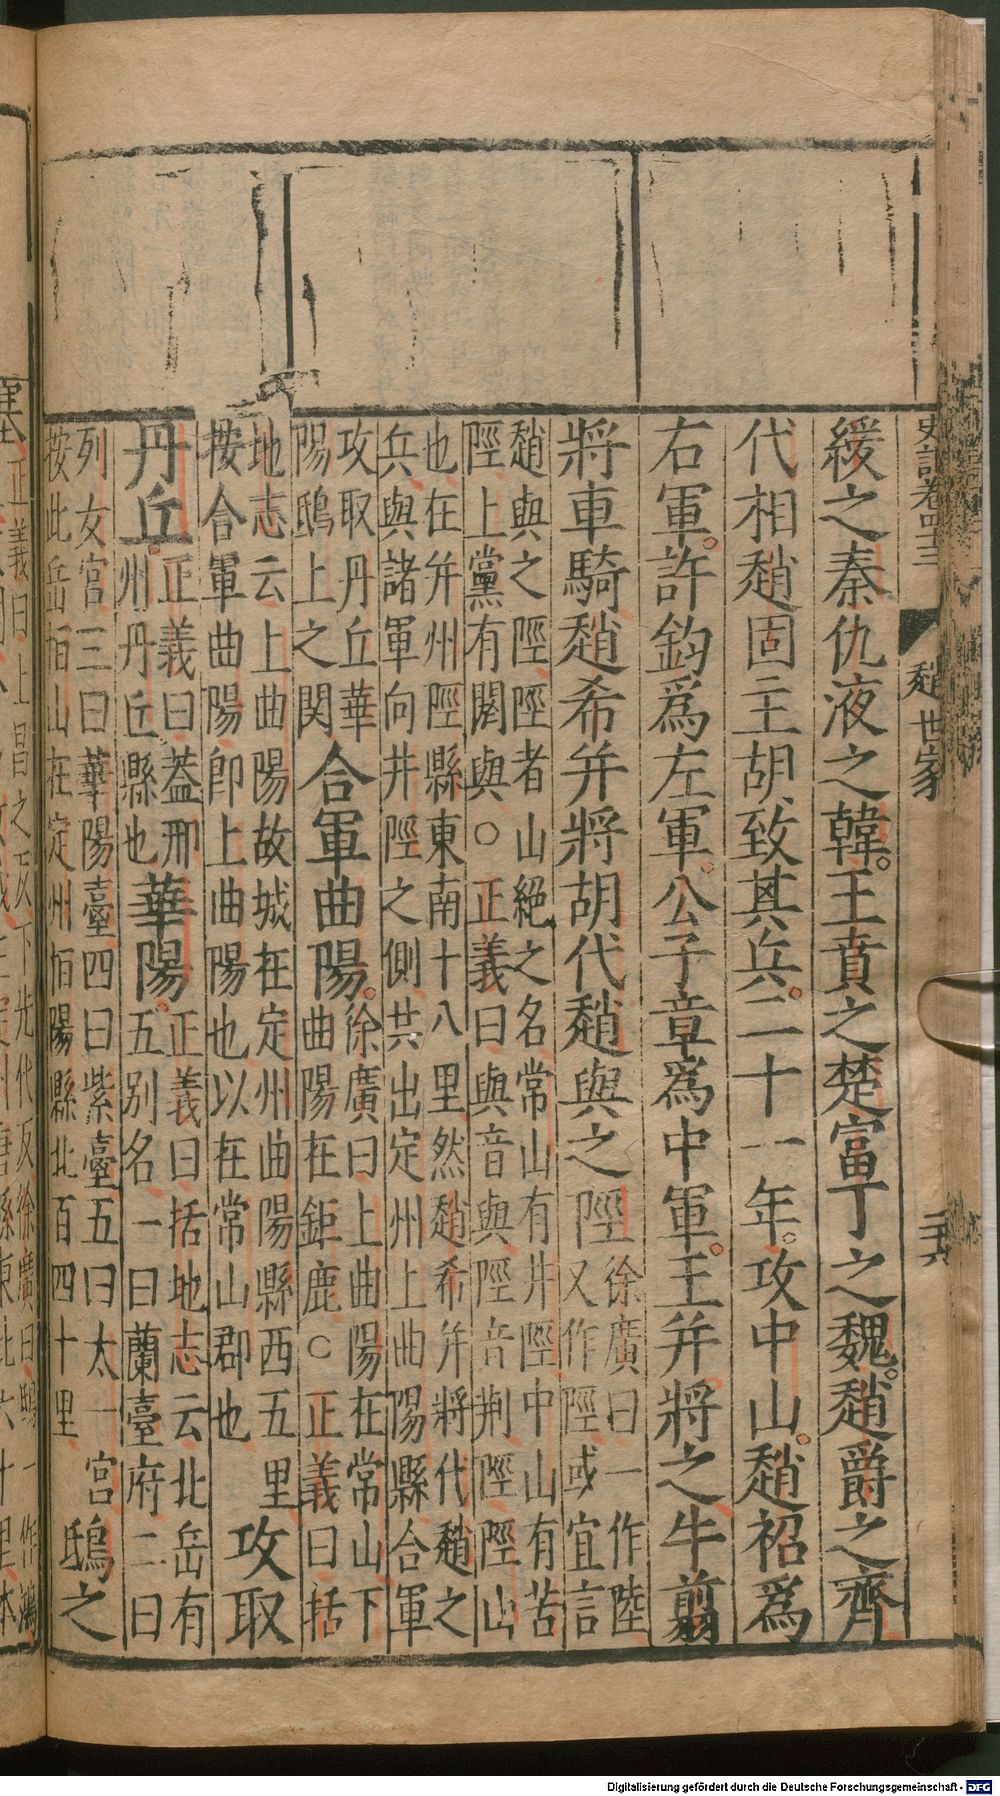 史記卷四十三
趙世家
二十六
緩之秦仇液之韓王賁之楚富丁之魏趙爵之齊
代相趙固主胡致其兵二十一年攻中山趙袑爲
右軍許鈞爲左軍公子章爲中軍王并將之牛翦
將車騎趙希并將胡代趙與之陘徐廣曰一作陸
又作陘或宜言
趙與之陘陘者山絕之名常山有井陘中山有苦
陘上黨有閼與○正義曰與音與陘音荆陘陘山
也在并州陘縣東南十八里然趙希并將代趙之
兵與諸軍向井陘之側共出定州上曲陽縣合軍
攻取丹丘華
陽鴟上之関
合軍曲陽徐廣曰上曲陽在常山下
曲陽在鉅鹿○正義曰括
地志云上曲陽故城在定州曲陽縣西五里
按合軍曲陽即上曲陽也以在常山郡也
攻取
丹丘正義曰蓋邢
州丹丘縣也
華陽正義曰括地志云北岳有
五別名一曰蘭臺府二曰
列女宮三曰華陽臺四曰紫臺五曰太一宮
按此岳栢山在定州栢陽縣北百四十里
鴟之
塞
正義曰上昌之反下先代反徐廣曰鴟一作鴻
Digitalisierung gefördert durch die Deutsche Forschungsgemeinschaft - DFG